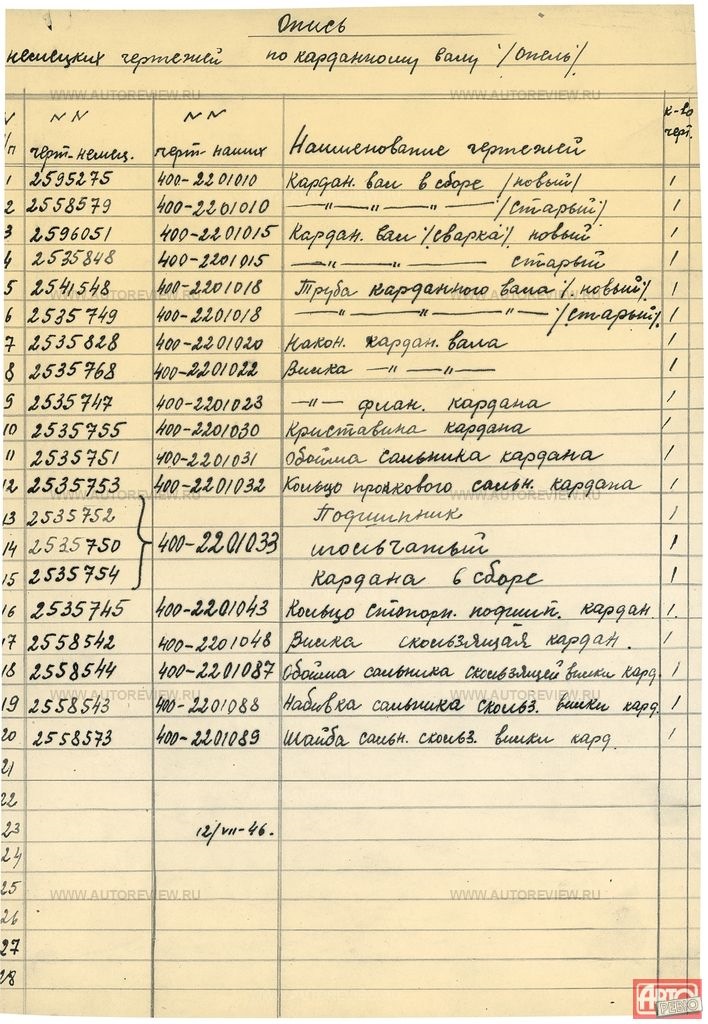 Опись
немецких чертежей по карданному валу /Опель/
WWW.AUTOREVIEW.RU WWW.AUTOREVIEW.RU
N п/п NN черт. немец. NN черт. наших Наименование чертежей к-во черт.
1 2595275 400-2201010 Кардан. вал в сборе /новый/ 1
2 2558579 400-2201010 —„—„—„— /старый/ 1
3 2596051 400-2201015 Кардан. вал /сварка/ новый 1
4 2535848 400-2201015 —„—„— старый 1
5 2541548 400-2201018 Труба карданного вала /новый/ 1
WWW.AUTOREVIEW.RU WWW.AUTOREVIEW.RU
6 2535749 400-2201018 —„—„—„— /старый/ 1
7 2535828 400-2201020 Након. кардан. вала 1
8 2535768 400-2201022 Вилка —„—„— 1
9 2535747 400-2201023 —„— флан. кардана 1
10 2535755 400-2201030 Крестовина кардана 1
11 2535751 400-2201031 Обойма сальника кардана 1
12 2535753 400-2201032 Кольцо сальн. кардана 1
WWW.AUTOREVIEW.RU WWW.AUTOREVIEW.RU
13 2535752 Подшипник 1
14 2535750 400-2201033 игольчатый 1
15 2535754 кардана в сборе 1
16 2535745 400-2201043 Кольцо стопорн. подшип. кардан. 1
17 2558542 400-2201048 Вилка скользящая кардан. 1
18 2558544 400-2201087 Обойма сальника скользящей вилки кард. 1
WWW.AUTOREVIEW.RU WWW.AUTOREVIEW.RU
19 2558543 400-2201088 Набивка сальника скольз. вилки кард. 1
20 2558573 400-2201089 Шайба сальн. скольз. вилки кард. 1
21
22
23 12/VII-46.
24
25
WWW.AUTOREVIEW.RU WWW.AUTOREVIEW.RU
26
27
28
WWW.AUTOREVIEW.RU WWW.AUTOREVIEW.RU
АВТО
РЕВЮ